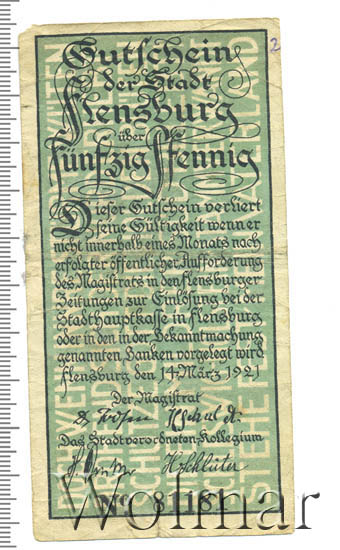 Gutschein
der Stadt
Flensburg
über
fünfzig Pfennig
Dieser Gutschein verliert
seine Gültigkeit wenn er
nicht innerhalb eines Monats nach
erfolgter öffentlicher Aufforderung
des Magistrats in den Flensburger
Zeitungen zur Einlösung bei der
Stadthauptkasse in Flensburg
oder in den in der Bekanntmachung
genannten Banken vorgelegt wird
Flensburg den 14. März 1921
Der Magistrat
Das Stadtverordneten-Kollegium
No 8118
Wolmar
2